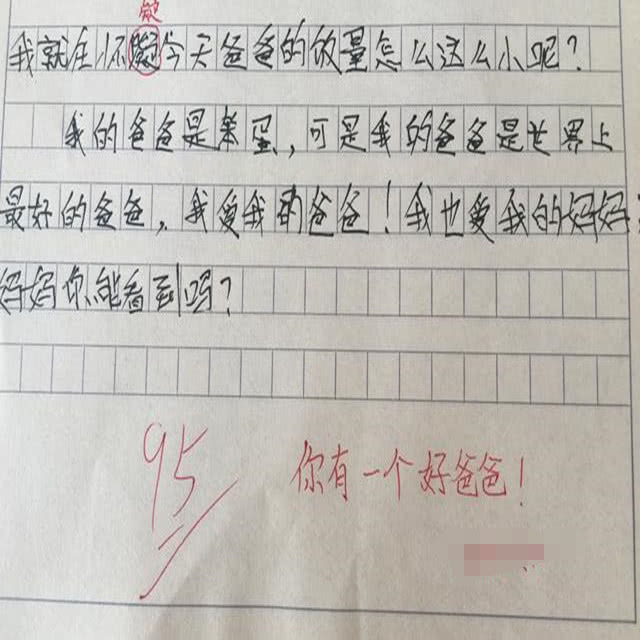 疑
我就在怀疑今天爸爸的放量怎么这么小呢？
我的爸爸是笨蛋，可是我的爸爸是世界上
最好的爸爸，我爱我的爸爸！我也爱我的妈妈，
妈妈你能看到吗？
95
你有一个好爸爸！